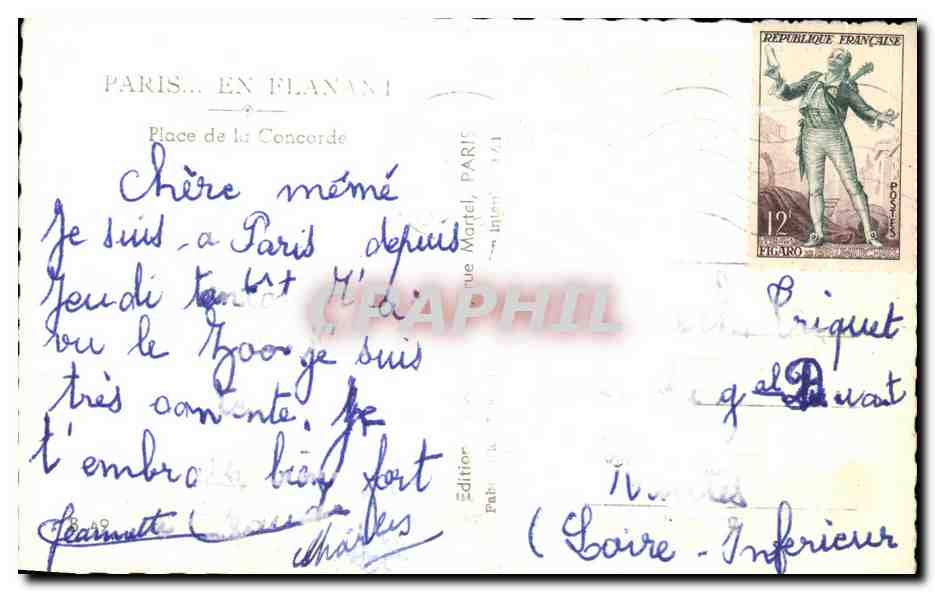 PARIS... EN FLANANT
Place de la Concorde
Chère mémé
Je suis a Paris depuis
Jeudi J'ai
vu le Zoo je suis
très contente. Je
t'embrasse bien fort
Jeannette Claude
Charles
Édition
rue Martel, PARIS
CPAPHIL
RÉPUBLIQUE FRANÇAISE
12F
POSTES
FIGARO
Criquet
gal Buat
Nantes
(Loire-Inferieur